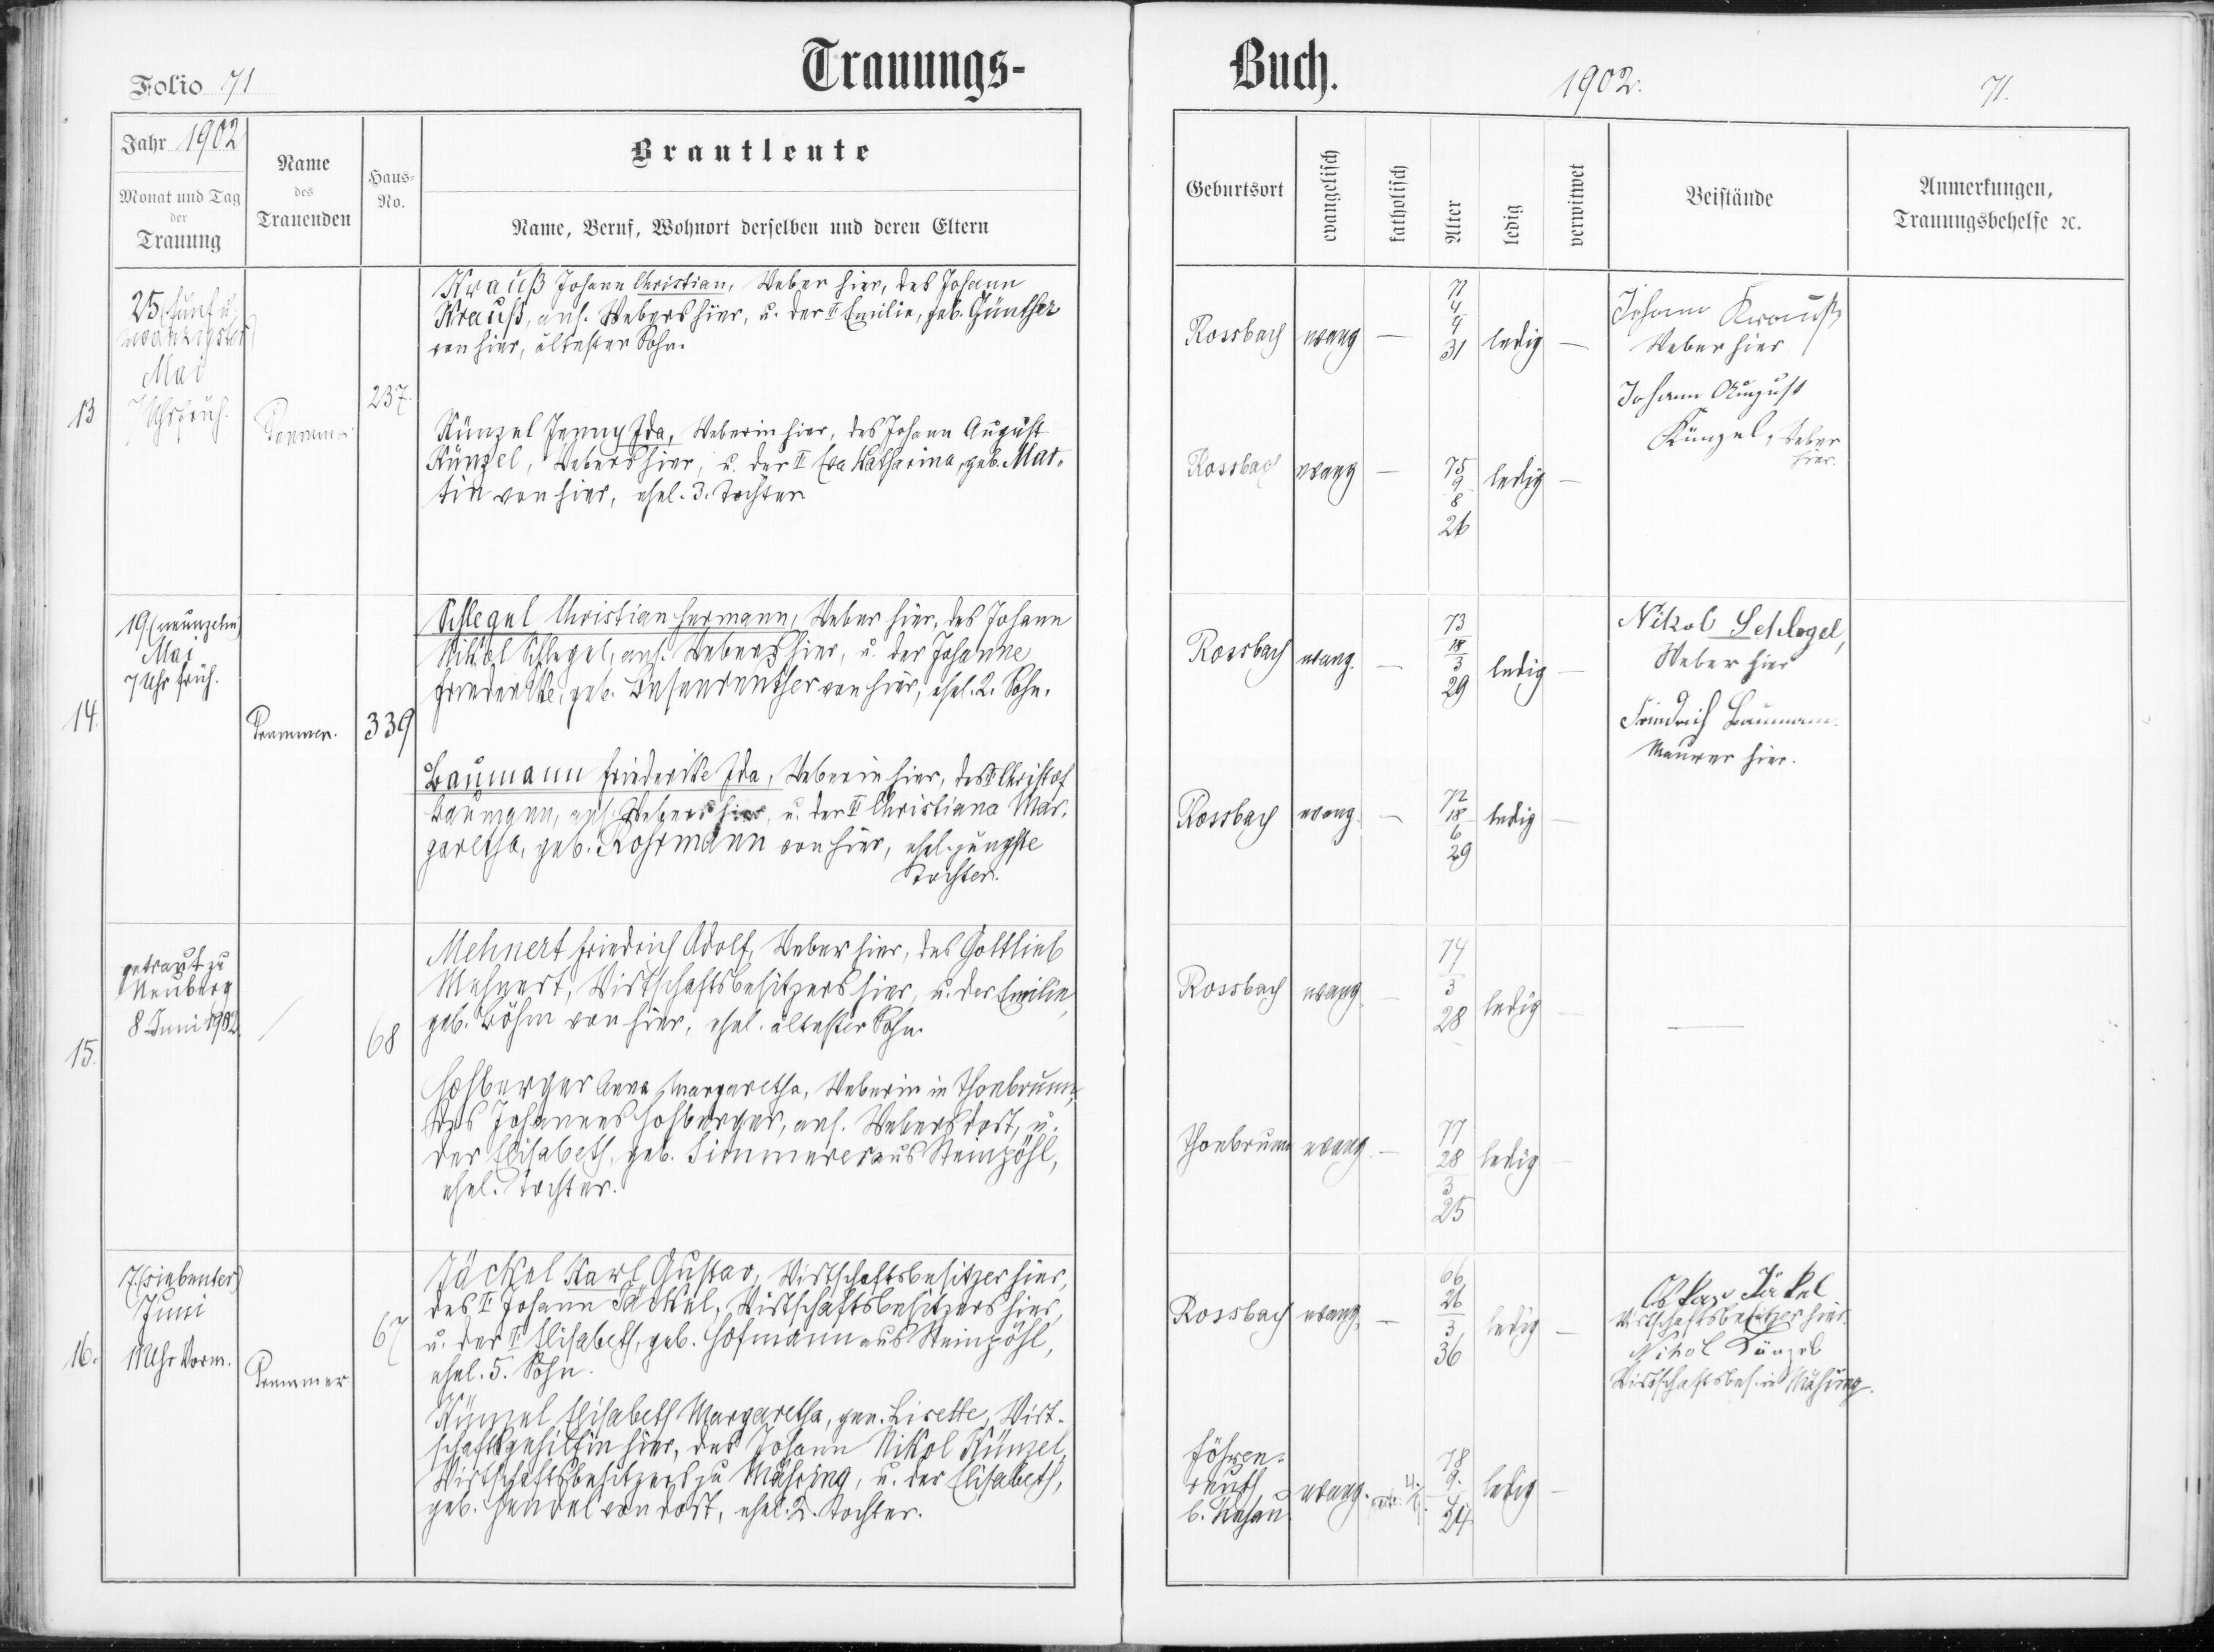 Trauungs-
Buch.
Folio 71
1902.
71.
Jahr 1902
Monat und Tag
der
Trauung
Name
des
Trauenden
Haus-
No.
Brautleute
Name, Beruf, Wohnort derselben und deren Eltern
Geburtsort
evangelisch
katholisch
Alter
ledig
verwitwet
Beistände
Anmerkungen,
Trauungsbehelfe ꝛc.
13
25. (fünf u.
zwanzigster)
Mai
7 Uhr früh.
237.
Krauß Johann Christian, Weber hier, des Johann
Krauß, ans. Webers hier, u. der II Emilie, geb. Günther
von hier, ältester Sohn.
Künzel Jenny Ida, Weberin hier, des Johann August
Künzel, Webers hier, u. der II Eva Katharina, geb. Mar-
tin von hier, ehel. 3. Tochter
Rossbach evang — 71 4 4 31 ledig —
Johann Krauß
Weber hier
Johann August
Künzel, Weber
hier.
Rossbach evang — 75 9 8 26 ledig —
14.
19. (neunzehn)
Mai
7 Uhr früh.
339
Schlegel Christian Hermann, Weber hier, des Johann
Nikol Schlegel, ans. Webers hier, u. der Johanne
Friederike, geb. von hier, ehel. 2. Sohn.
Baumann Friederike Ida, Weberin hier, des Christof
Baumann, ans. Webers hier, u. der II Christiana Mar-
garetha, geb. Rohrmann von hier, ehel. jüngste
Tochter.
Rossbach evang. — 73 18 3 29 ledig —
Nikol Schlegel,
Weber hier
Friedrich Baumann
Maurer hier.
Rossbach evang. — 72 18 6 29 ledig —
15.
getraut zu
Neuberg
8 Juni 1902.
68
Mehnert Friedrich Adolf, Weber hier, des Gottlieb
Mehnert, Wirtschaftsbesitzers hier, u. der Emilie,
geb. Böhm von hier, ehel. ältester Sohn.
Hohberger Anna Margaretha, Weberin in Thonbrunn,
des Johannes Hohberger, ans. Webers dort, u.
der Elisabeth, geb. Simmerer aus Steinpöhl,
ehel. Tochter.
Rossbach evang — 74 1 3 28 ledig —
Thonbrunn evang. — 77 28 3 25 ledig —
16.
7. (siebenter)
Juni
11 Uhr Vorm.
67
Jäckel Karl Gustav, Wirtschaftsbesitzer hier,
des II Johann Jäckel, Wirtschaftsbesitzers hier,
u. der II Elisabeth, geb. Hofmann aus Steinpöhl,
ehel. 5. Sohn.
Künzel Elisabeth Margaretha, gen. Lisette, Wirt-
schaftsgehilfin hier, des Johann Nikol Künzel,
Wirtschaftsbesitzers zu Mähring, u. der Elisabeth,
geb. Hendel von dort, ehel. 2. Tochter.
Rossbach evang. — 66 26 3 36 ledig —
Oskar Jäkel
Wirtschaftsbesitzer hier.
Nikol Künzel
Wirtschaftsbes. in Mähring.
Föhren-
reuth
b. Rehau evang. 78 9. 24 ledig —